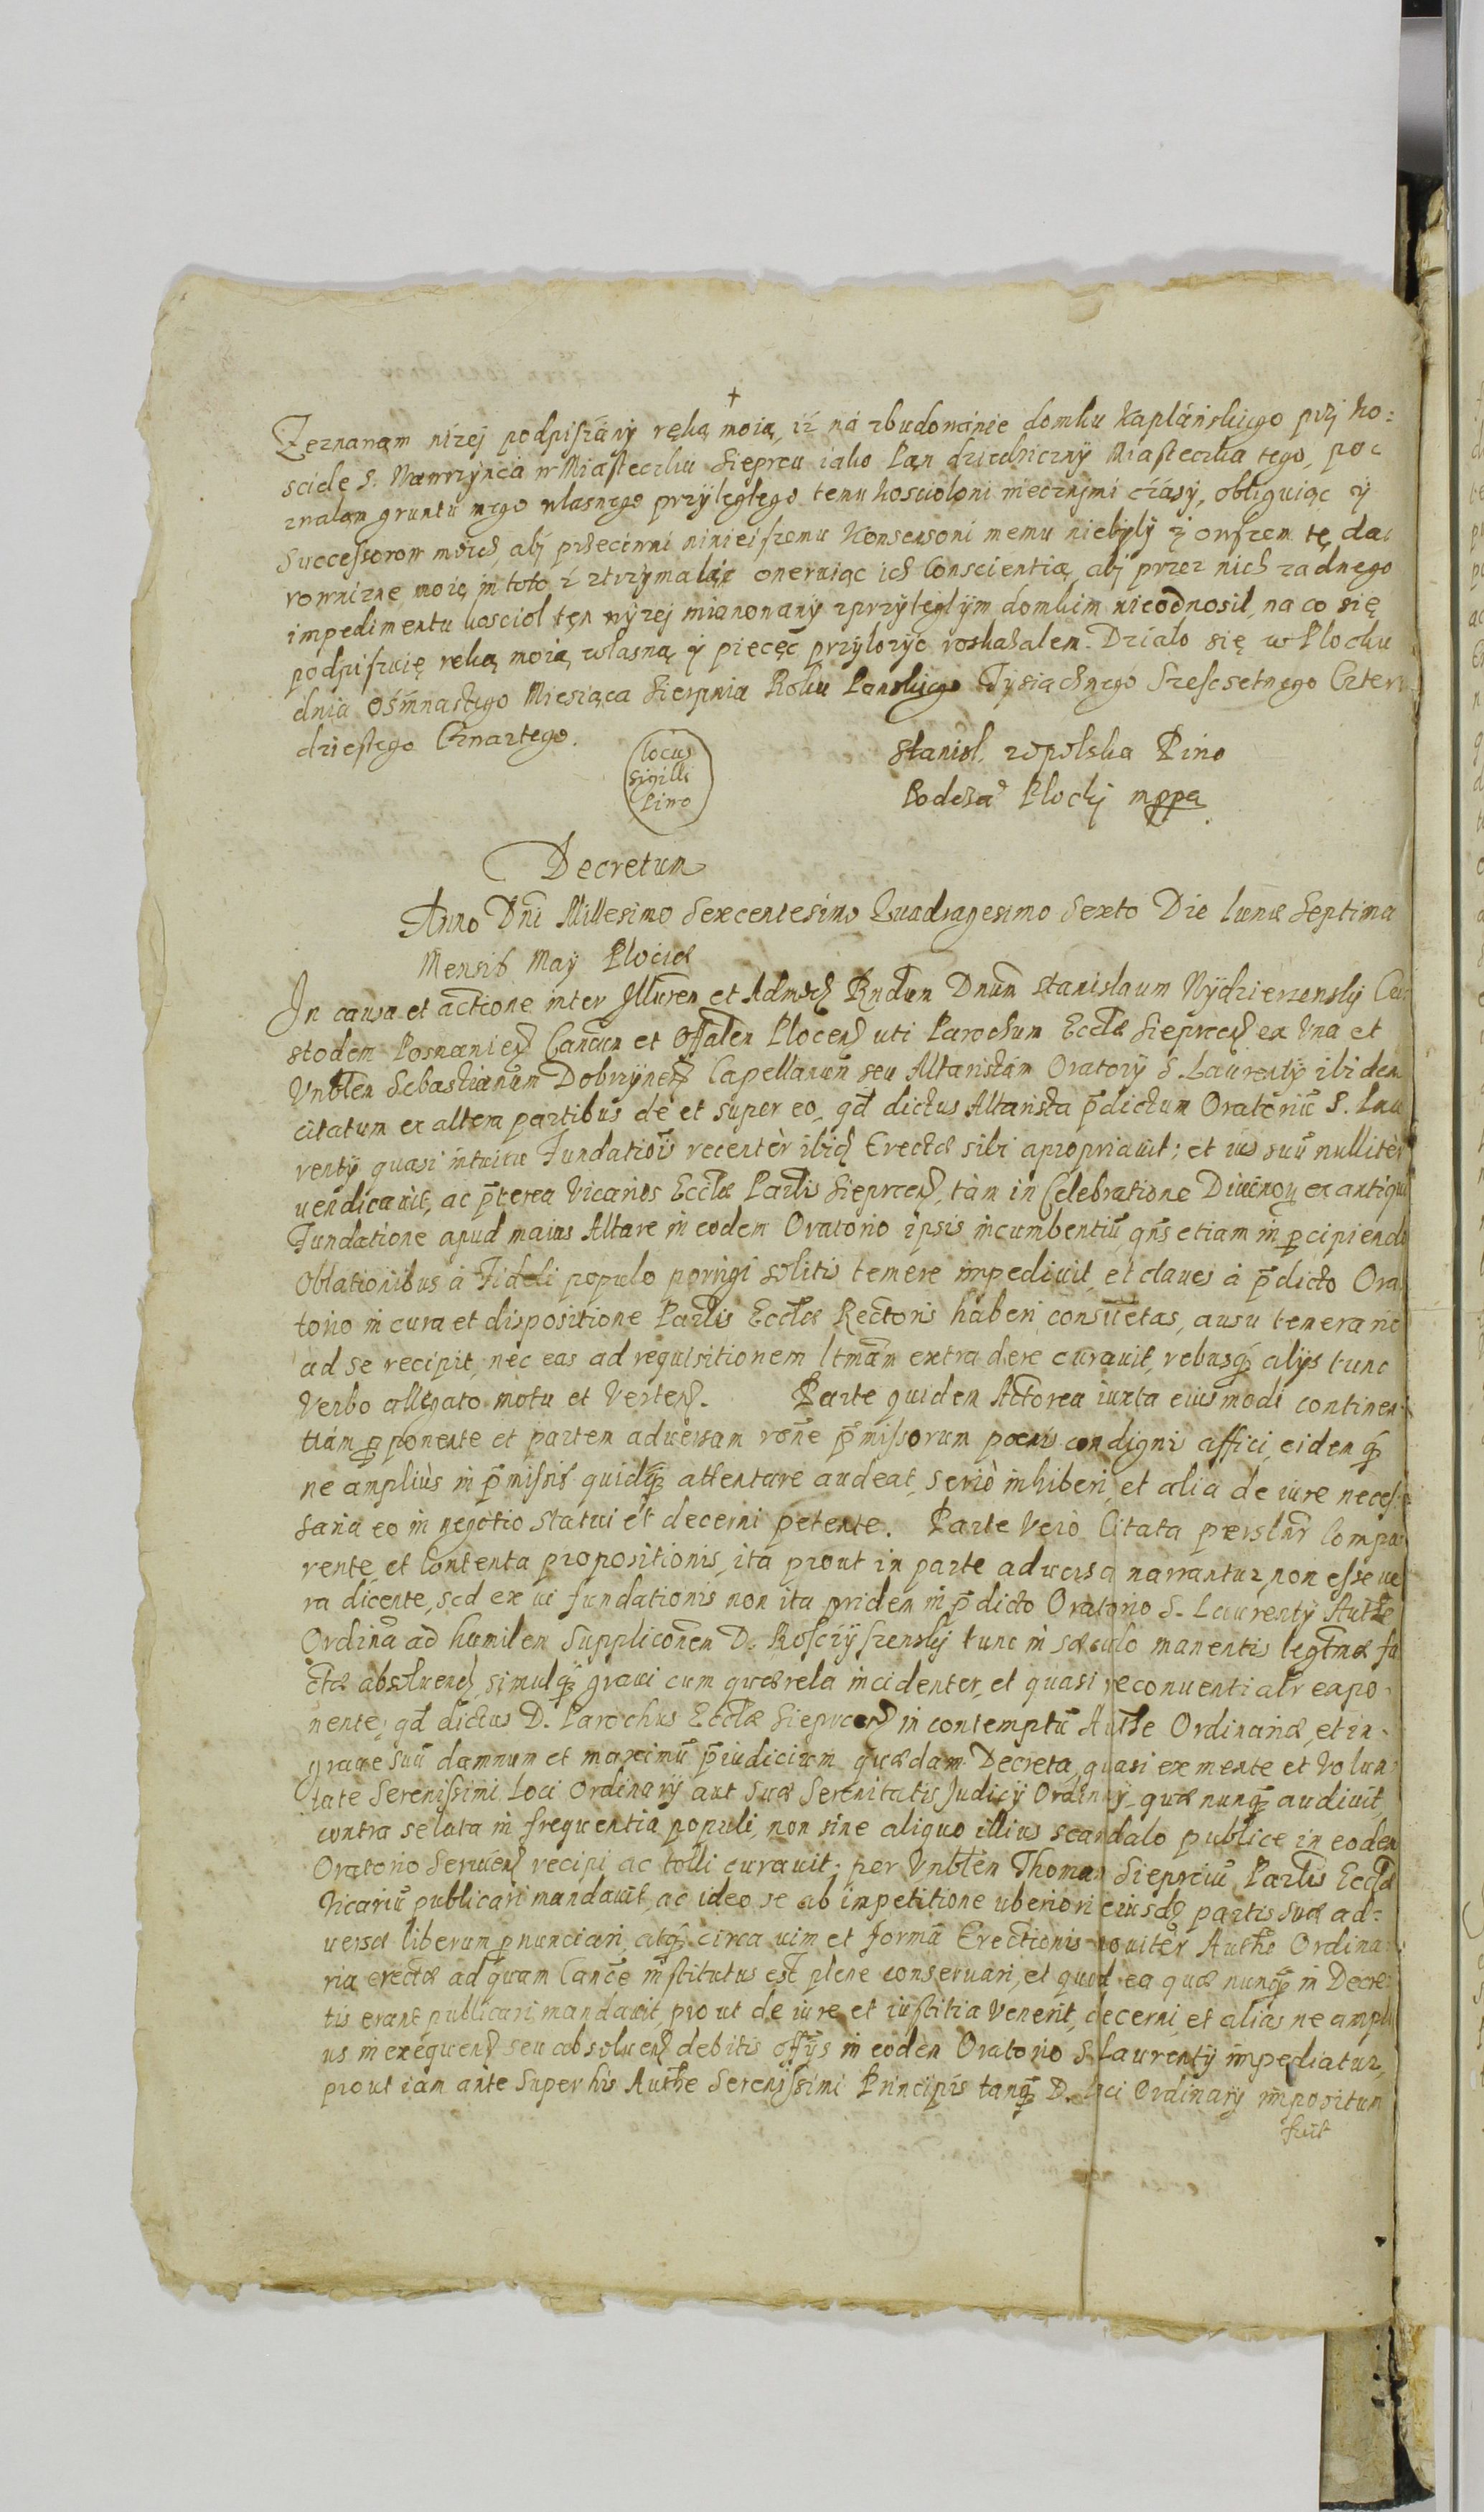 +
Zeznawam niżej podpisány ręką moią, iż ná zbudowánie domku kaplánskiego przj ko=
sciele S. Wawrzyncá w Miasteczku Sieprcu iako Pan dziedziczny Miasteczka tego, poz
znalem gruntu mego wlasnego przyleglego temu kosciolowi wiecznymi czásy, obliguiąc y
Successorow moich, abj przeciwni ninieiszemu Konsensowi memu niebyly y owszem tę da=
rowizne moię in toto ztrzymali, onerując ich Conscientią, abj przez nich zadnego
impedimentu kosciol ten wyzej mianowany zprzyleglym domkiem nieodnosil, na co się
podpisuię reką moią wlasną y pięcęć przylożyć roskazalem. Dzialo się w Plocku
dnia ośmnastego Miesiąca Sierpnia Roku Panskiego Tysiącznego Szescsetnego Czter
dziestego Czwartego.
locus Sigilli Pino
Stanisl. zopolska Pino
Podcza Plockj mppa
Decretum
Anno Dni Millesimo Sexcentesimo Quadragesimo Sexto Die Lunæ Septima
Mensis Maÿ Plociæ
In causa et actione inter Illurem et Admod Rndum Dnum Stanislaum Wydzierzewskj Cu
stodem Posnanien Cancum et Offalem Plocen uti Parochum Ecclæ Sieprcen ex Vna et
Vnblem Sebastianum Dobrzynen Capellanum seu Altaristam Oratorÿ S. Laurentÿ ibidem
citatum ex altera partibus de et super eo, qd dictus Altarista pdictum Oratoriu S. Lau
rentÿ quasi intuitu Fundatiois recentèr ibid Erectæ sibi apropriauit; et ius suu nullitèr
uendicauit, ac pterea Vicarios Ecclæ Parlis Sieprcen, tàm in Celebratione Diuinoru ex antiqua
Fundatione apud maius Altare in eodem Oratorio ipsis incumbentiu, qns etiam in pcipiendis
Oblationibus à Fideli populo porrigi solitis temere impediuit, et claues à pdicto Ora
torio in cura et dispositione Parlis Ecclæ Rectoris haberi consuetas, ausu temerario
ad se recipit, nec eas ad requisitionem ltmam extradere curauit, rebusq alÿs tunc
Verbo allegato motu et Verten. Parte quidem Actorea iuxta eiusmodi continen
tiàm pponente et partem aduersam rone pmissorum poenis condignis affici, eidemq
ne ampliùs in pmissis quidq attentare audeat, seriò inhiberi, et alia de iure neces
saria eo in negotio statui et decerni petente. Parte Verò Citata perslnr Compa
rente, et Contenta propositionis, ita prout in parte aduersa narrantur, non esse ue
ra dicente, sed ex ui fundationis non ita pridem in pdicto Oratorio S. Laurentÿ Authe
Ordina ad humilem Supplicoñem D. Rosciszewskj tunc in sæculo manentis legtmæ fa
ctæ absoluend, simulq graui cum quærela incidenter, et quasi reconuentialr expo=
nente, qd dictus D. Parochus Ecclæ Sieprcen in contemptu Authe Ordinariæ, et in
graue suu damnum et maximu piudicium quædam Decreta, quasi ex mente et Volun
tate Serenissimi Loci Ordinarÿ aut Suæ Serenitatis Judicÿ Ordinarÿ, quæ nunq audiuit,
contra se lata in frequentia populi, non sine aliquo illius scandalo publice in eodem
Oratorio Seruien recipi ac tolli curauit; per Vnblem Thomam Sieprciu Parlis Ecclæ
Vicariu publicari mandauit, ac ideo se ab impetitione uberiori eiusd partis suæ ad=
uersæ liberum pnunciari, atq circa uim et forma Erectionis nouitèr Authe Ordina
ria erectæ ad quam Cance institutus est plene conseruari, et quod ea quæ nunq in Decre
tis erant publicari mandauit, prout de iure et iustitia Venerit, decerni, et alias ne ampli
us in exequend seu absoluend debitis offÿs in eodem Oratorio S Laurentÿ impediatur,
prout iam ante Super his Authe Serenissimi Principis tanq D. Loci Ordinarÿ impositum
fuit